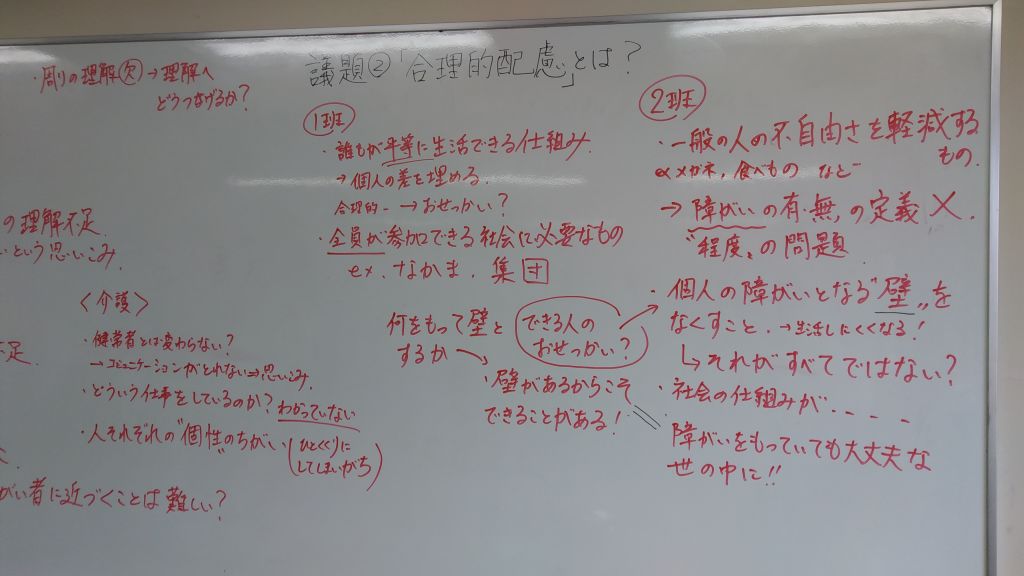 議題②「合理的配慮」とは？
・周りの理解㋨→理解へ
どうつなげるか？
の理解不足
という思いこみ
足
〈介護〉
・健常者とは変わらない？
→コミュニケーションがとれない⇒思いこみ.
・どういう仕事をしているのか？わかっていない
・人それぞれの"個性"のちがい
(ひとくくりに
してしまいがち)
がい者に近づくことは難しい？
1班
・誰もが平等に生活できる仕組み.
→個人の差を埋める.
合理的－→おせっかい？
・全員が参加できる社会に必要なもの
ex. なかま. 集団
何をもって壁と
するか
できる人の
おせっかい？
・壁があるからこそ
できることがある！
2班
・一般の人の不自由さを軽減する
もの.
ex メガネ, 食べもの など
→障がいの有・無, の定義 ×.
"程度"の問題
・個人の障がいとなる"壁"を
なくすこと. →生活しにくくなる！
↳それがすべてではない？
・社会の仕組みが・・・・
障がいをもっていても大丈夫な
世の中に!!